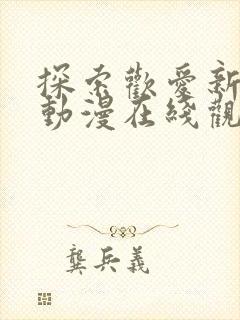 探索歡愛新
動漫在綫觀
龔兵義